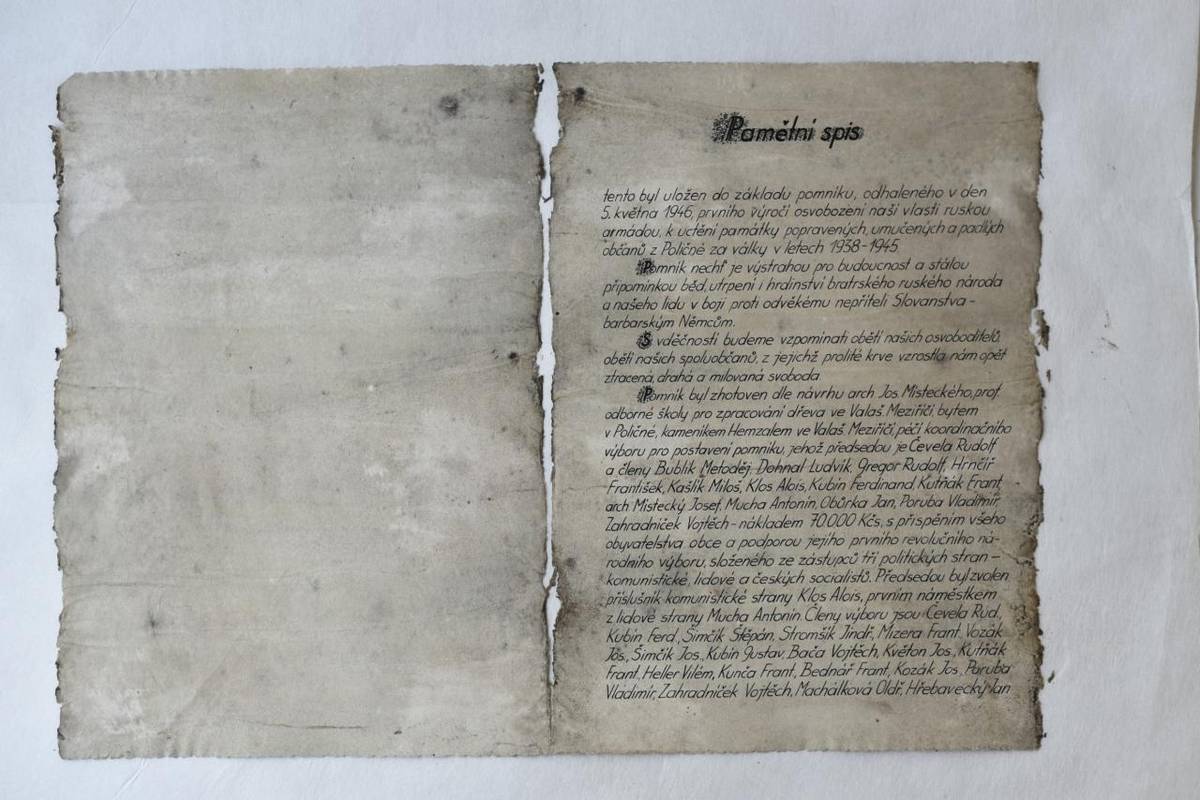 Pamětní spis
tento byl uložen do základu pomníku, odhaleného v den
5. května 1946, prvního výročí osvobození naší vlasti ruskou
armádou, k uctění památky popravených, umučených a padlých
občanů z Poličné za války v letech 1938-1945.
Pomník nechť je výstrahou pro budoucnost a stálou
připomínkou běd, utrpení i hrdinství bratrského ruského národa
a našeho lidu v boji proti odvěkému nepříteli Slovanstva -
barbarským Němcům.
S vděčností budeme vzpomínati obětí našich osvoboditelů,
obětí našich spoluobčanů, z jejichž prolité krve vzrostla nám opět
ztracená, drahá a milovaná svoboda.
Pomník byl zhotoven dle návrhu arch Jos. Místeckého, prof.
odborné školy pro zpracování dřeva ve Valaš. Meziříčí bytem
v Poličné, kameníkem Hemzalem ve Valaš. Meziříčí, péčí koordinačního
výboru pro postavení pomníku, jehož předsedou je Čevela Rudolf
a členy Bublík Metoděj, Dohnal Ludvík, Gregor Rudolf, Hrnčíř
František, Kašlík Miloš, Klos Alois, Kubín Ferdinand, Kutňák Frant.,
arch Místecký Josef, Mucha Antonín, Obůrka Jan, Poruba Vladimír,
Zahradníček Vojtěch - nákladem 70.000 Kčs, s přispěním všeho
obyvatelstva obce a podporou jejího prvního revolučního ná-
rodního výboru, složeného ze zástupců tří politických stran -
komunistické, lidové a českých socialistů. Předsedou byl zvolen
příslušník komunistické strany Klos Alois, prvním náměstkem
z lidové strany Mucha Antonín. Členy výboru jsou Čevela Rud.,
Kubín Ferd., Šimčík Štěpán, Stromšík Jindř., Mizera Frant. Vozák
Jos., Šimčík Jos., Kubín Gustav, Bača Vojtěch, Květon Jos., Kutňák
Frant., Heller Vilém, Kunča Frant., Bednář Frant., Kozák Jos., Poruba
Vladimír, Zahradníček Vojtěch, Machálková Oldř., Hřebavecký Jan